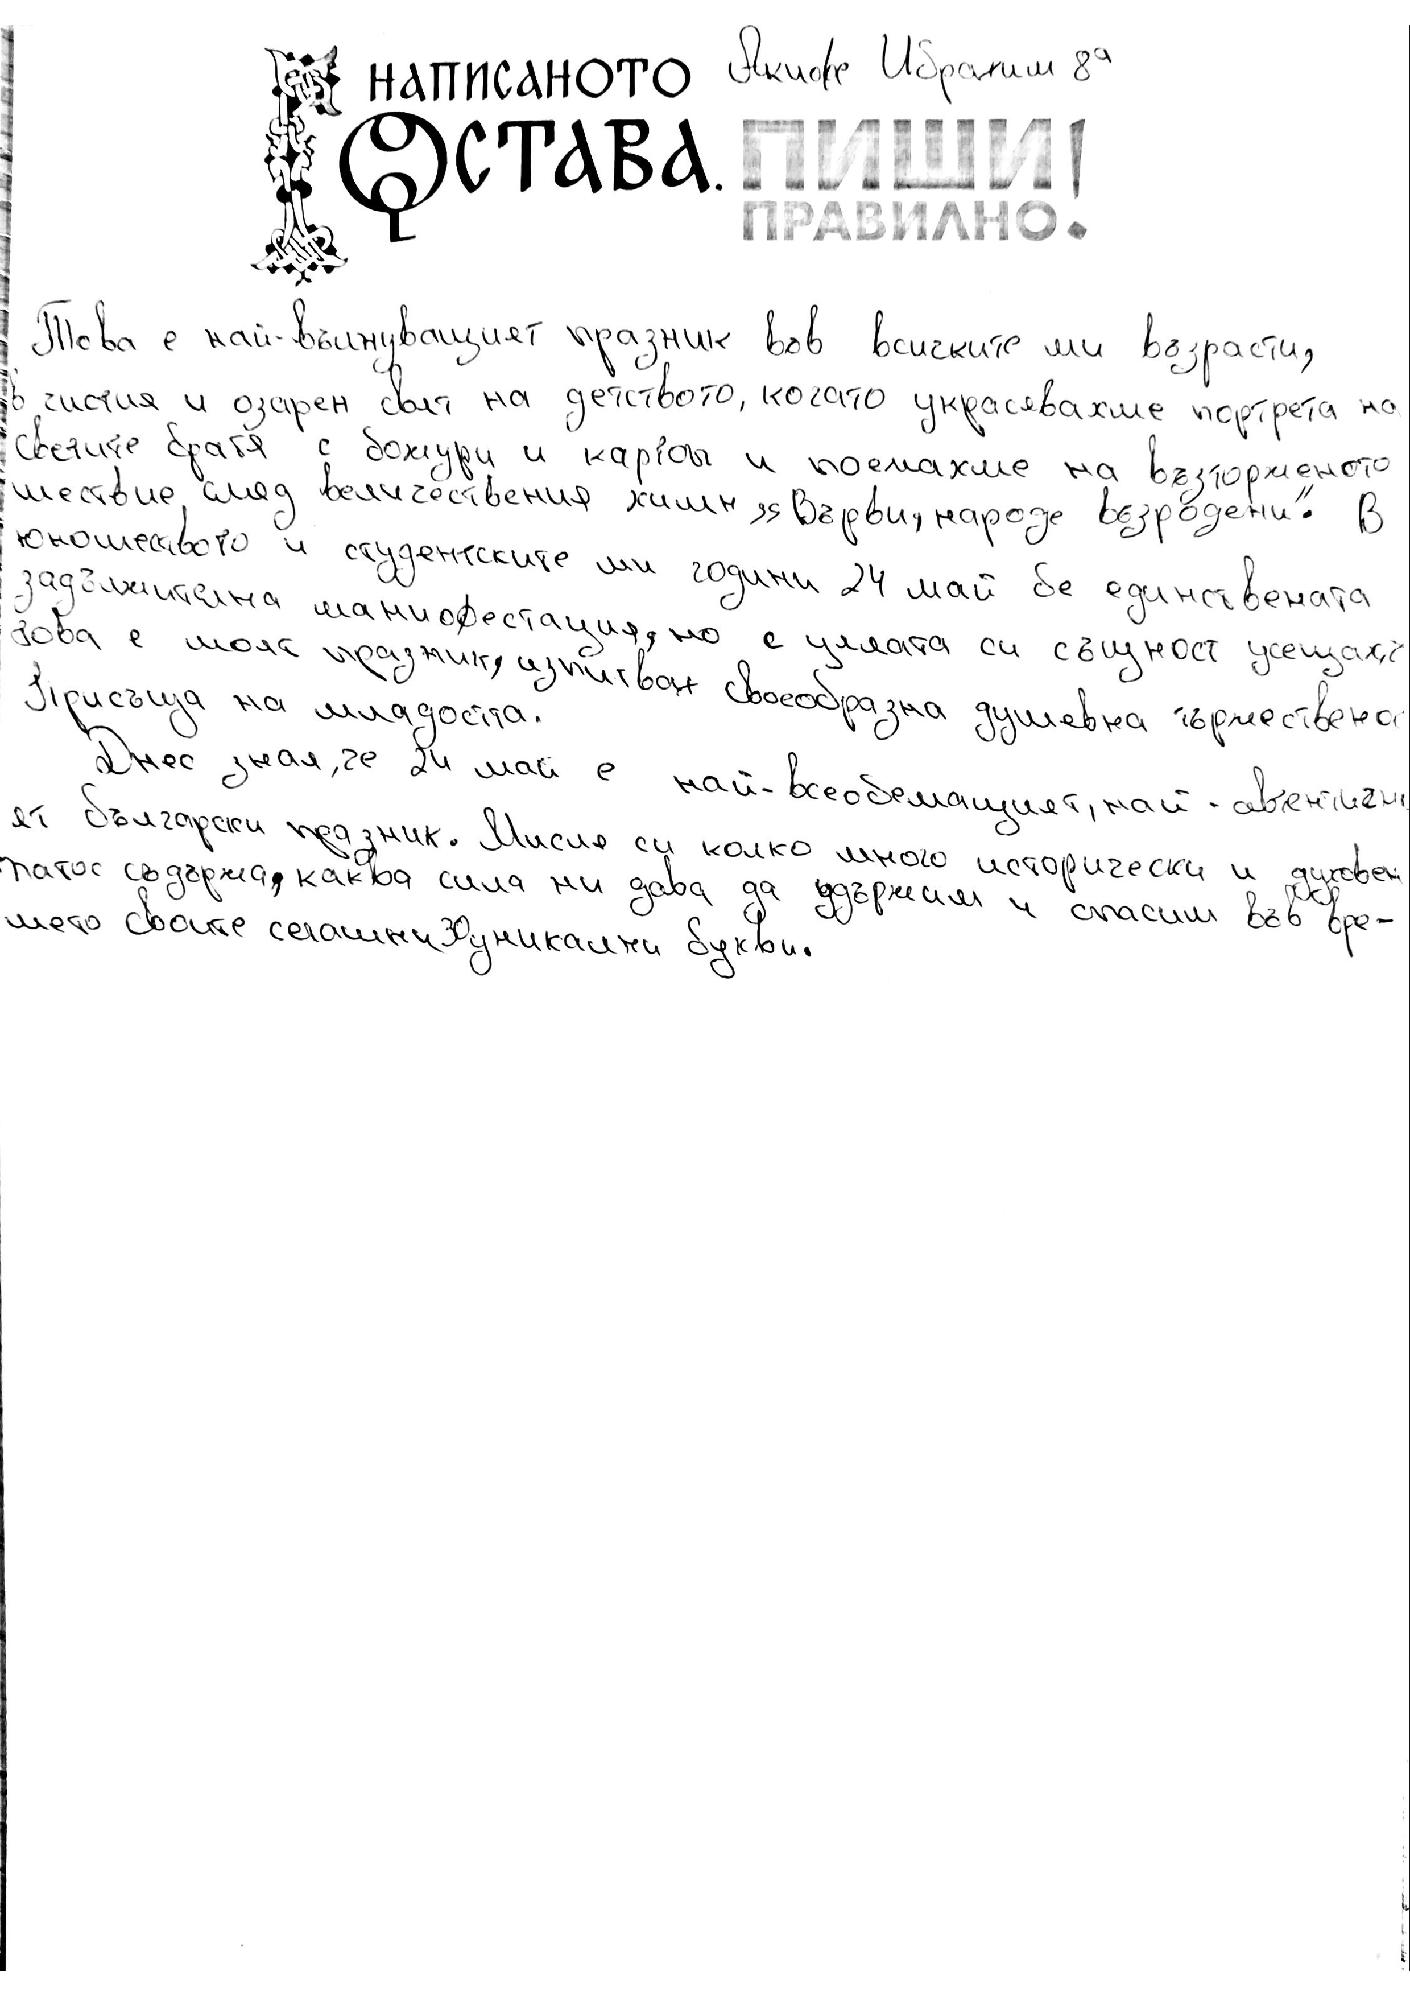 НАПИСАНОТО
ОСТАВА.
Акиф Ибрахим 8а
ПИШИ!
ПРАВИЛНО
Това е най-вълнуващият празник във всичките ми възрасти,
в чистия и озарен свят на детството, когато украсявахме портрета на
светите братя с божури и карфи и поемахме на възторженото
шествие след величествения химн „Върви, народе възродени“. В
юношеството и студентските ми години 24 май бе единствената
задължителна манифестация, но с цялата си същност усещах,ч
това е моят празник, изпитвах своеобразна душевна тържествено
присъща на младостта.
Днес зная, че 24 май е най-всеобемащият, най-автентични
ят български празник. Мисля си колко много исторически и духовен
патос съдържа, каква сила ни дава да удържим и спасим във вре-
мето своите сегашни 30 уникални букви.